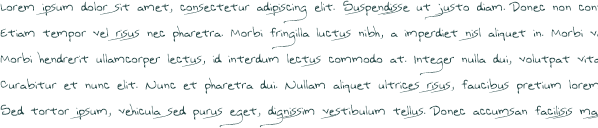 Lorem ipsum dolor sit amet, consectetur adipiscing elit. Suspendisse ut justo diam. Donec non con
Etiam tempor vel risus nec pharetra. Morbi fringilla luctus nibh, a imperdiet nisl aliquet in. Morbi v
Morbi hendrerit ullamcorper lectus, id interdum lectus commodo at. Integer nulla dui, volutpat vita
Curabitur et nunc elit. Nunc et pharetra dui. Nullam aliquet ultrices risus, faucibus pretium lorem
Sed tortor ipsum, vehicula sed purus eget, dignissim vestibulum tellus. Donec accumsan facilisis ma